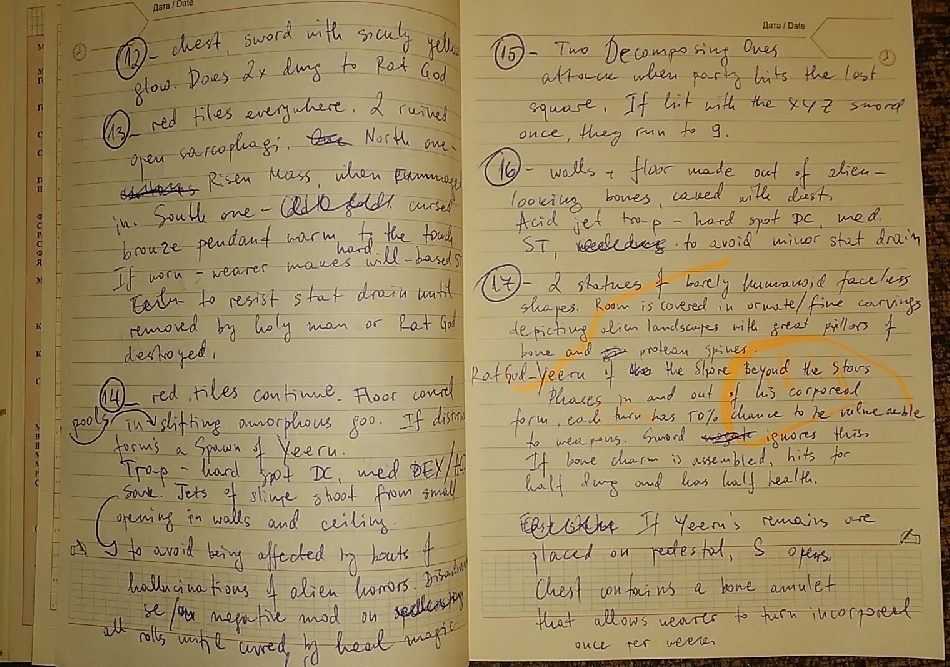 Дата / Date
12 - chest, sword with sickly yellow
glow. Does 2x dmg to Rat God
13 - red tiles everywhere. 2 ruined
open sarcophagi. North one -
Risen Mass, when rummaged
in. South one - cursed
bronze pendant warm to the touch
If worn - wearer makes hard will-based ST
to resist stat drain until
removed by holy man or Rat God
destroyed.
14 - red tiles continue. Floor covered
pools in shifting amorphous goo. If
forms a Spawn of Yeern.
Trap - hard spot DC, med DEX/
Save. Jets of slime shoot from small
opening in walls and ceiling.
to avoid being affected by bouts of
hallucinations of alien horrors.
se / negative mod on
all rolls until cured by heal magic
Дата / Date
15 - Two Decomposing Ones
attack when party hits the last
square. If hit with the XYZ sword
once, they run to 9.
16 - walls + floor made out of alien-
looking bones, caked with dust.
Acid jet trap - hard spot DC, med.
ST, to avoid minor stat drain
17 - 2 statues of barely humanoid faceless
shapes. Room is covered in ornate/fine carvings
depicting alien landscapes with great pillars of
bone and protean spines.
Rat God - Yeern of the Shore Beyond the Stars
Phases in and out of his corporeal
form, each turn has 50% chance to be vulnerable
to weapons. Sword ignores this.
If bone charm is assembled, hits for
half dmg and has half health.
If Yeern's remains are
placed on pedestal, S opens.
Chest contains a bone amulet
that allows wearer to turn incorporeal
once per week